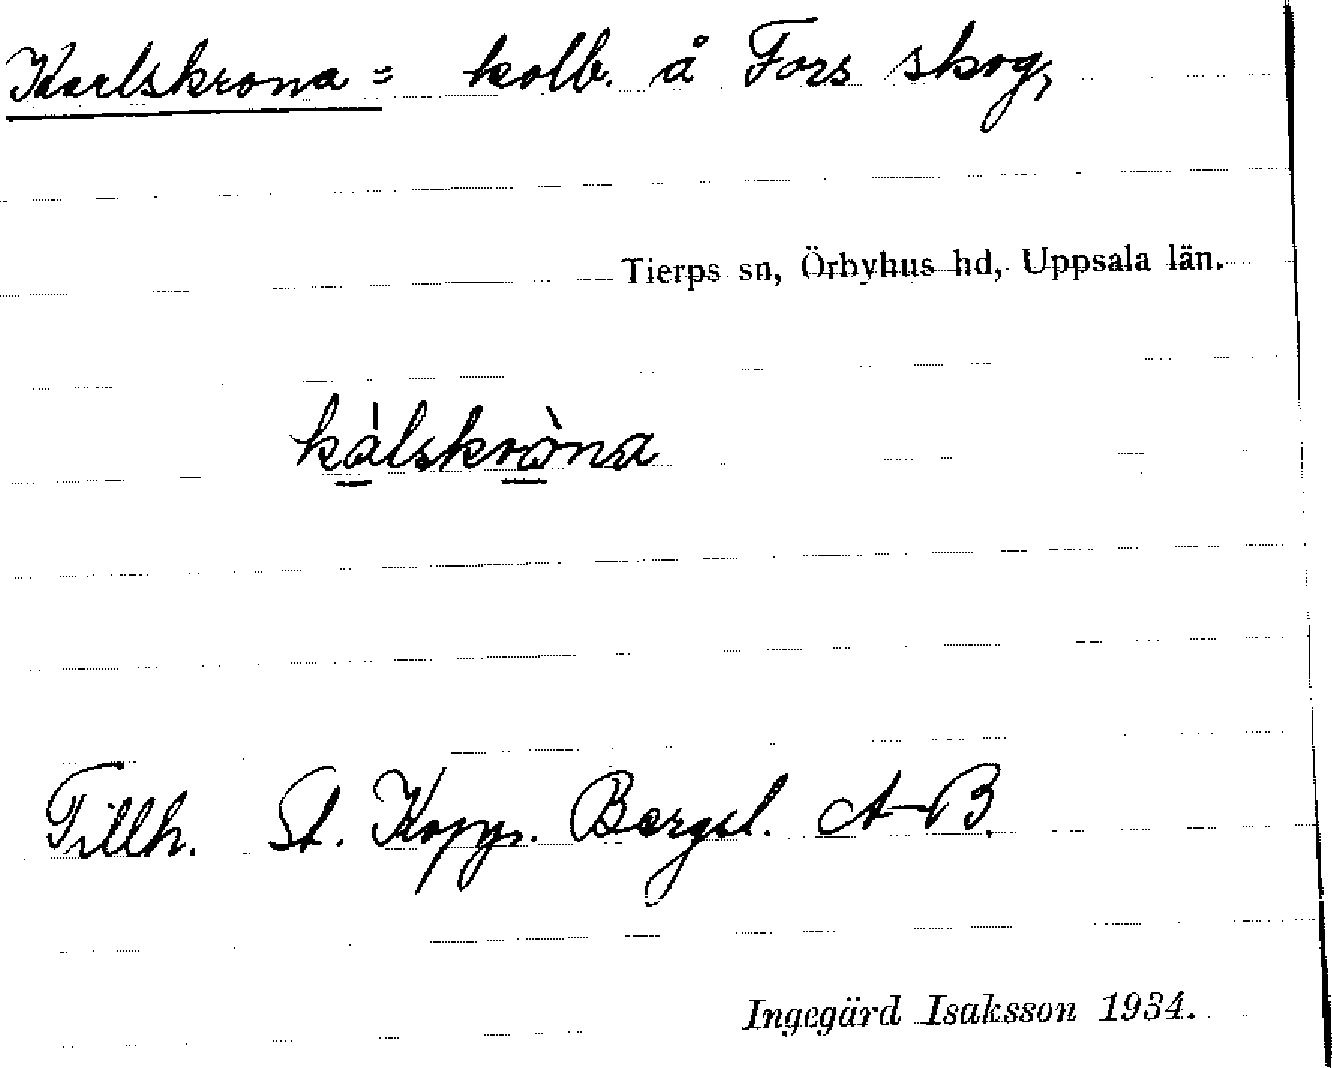 Karlskrona = kolb. å Fors skog,
Tierps sn, Örbyhus hd, Uppsala län.
kálskròna
Tillh. St. Kopp. Bergsl. A-B.
Ingegärd Isaksson 1934.